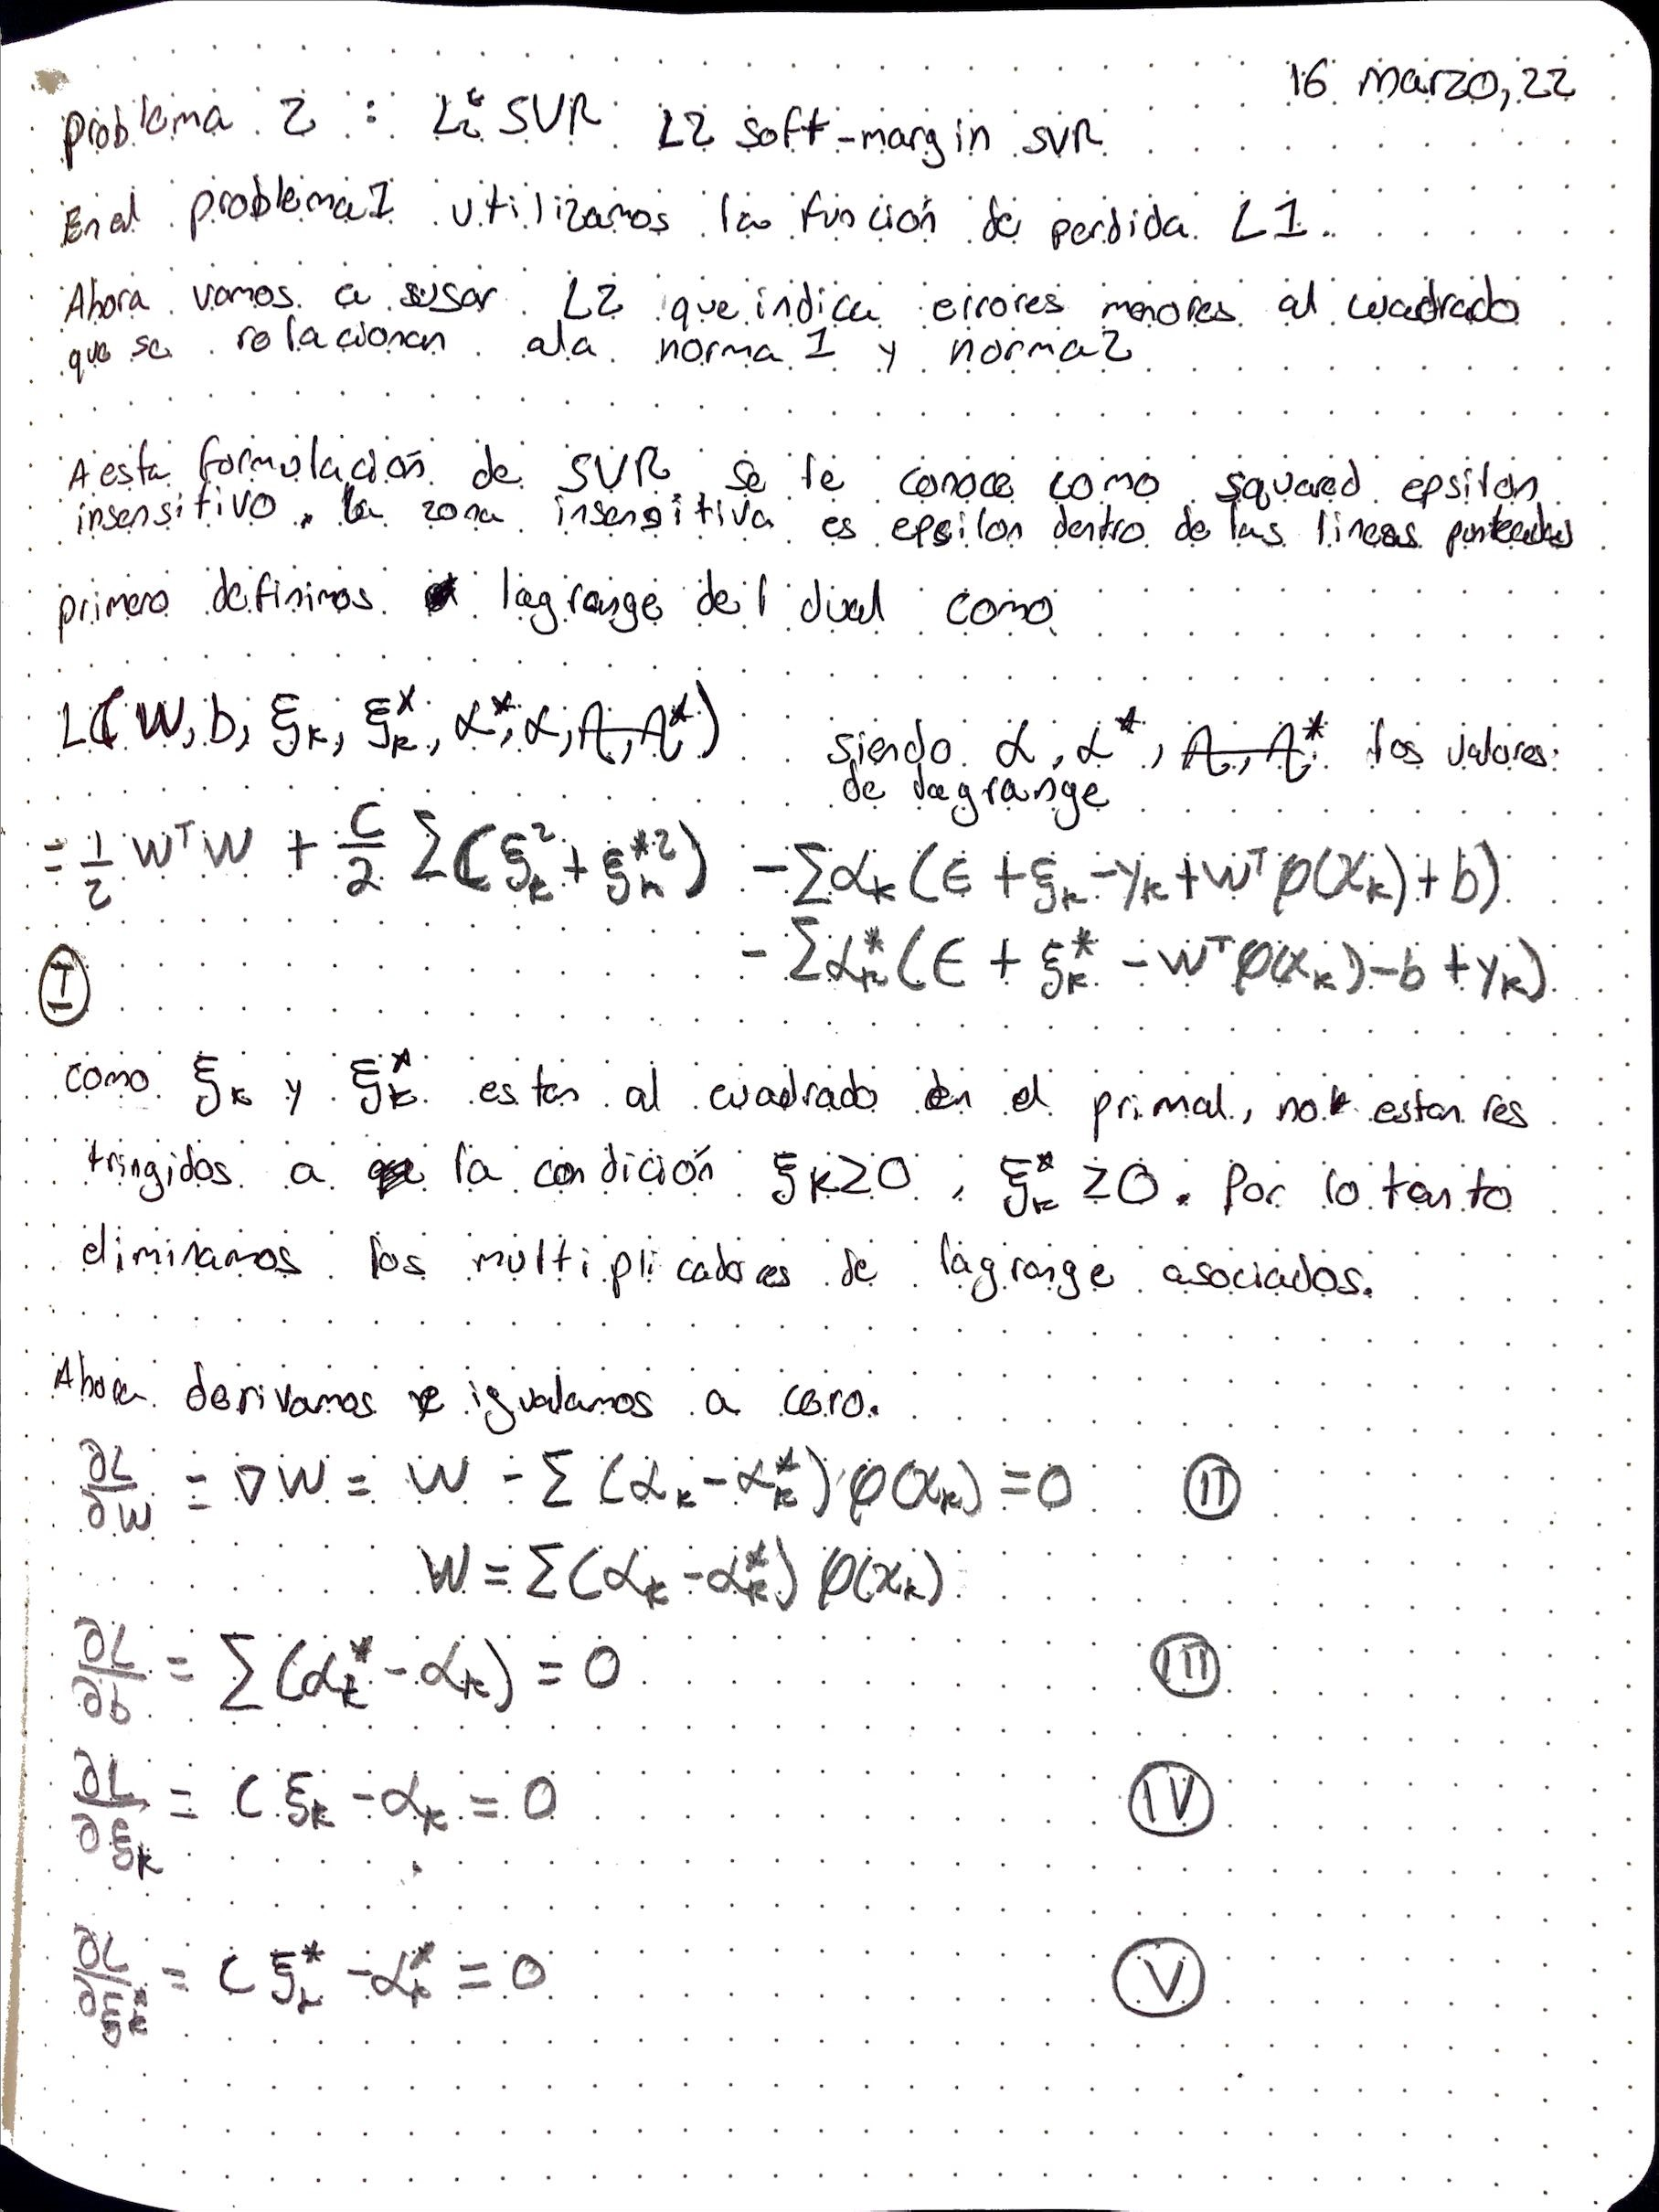 16 marzo, 22
problema 2 : L₂ᵋ SVR L2 soft-margin SVR
En el problema 1 utilizamos la función de perdida L1.
Ahora vamos a usar L2 que indica errores menores al cuadrado
que se relacionan a la norma 1 y norma 2
A esta formulación de SVR se le conoce como squared epsilon
insensitivo, la zona insensitiva es epsilon dentro de las lineas punteadas
primero definimos lagrange del dual como
L(W, b, ξₖ, ξₖ*, α*, α, A, A*) siendo α, α*, A, A* los valores
de lagrange
= 1/2 WᵀW + C/2 Σ(ξₖ² + ξₖ*²) - Σαₖ(ϵ + ξₖ - yₖ + Wᵀφ(xₖ) + b)
- Σαₖ*(ϵ + ξₖ* - Wᵀφ(xₖ) - b + yₖ)
I
como ξₖ y ξₖ* estan al cuadrado en el primal, no estan res
tringidos a la condición ξₖ≥0, ξₖ*≥0. Por lo tanto
eliminamos los multiplicadores de lagrange asociados.
Ahora derivamos e igualamos a cero.
∂L/∂W = ∇W = W - Σ(αₖ - αₖ*) φ(xₖ) = 0 II
W = Σ(αₖ - αₖ*) φ(xₖ)
∂L/∂b = Σ(αₖ* - αₖ) = 0 III
∂L/∂ξₖ = Cξₖ - αₖ = 0 IV
∂L/∂ξₖ* = Cξₖ* - αₖ* = 0 V